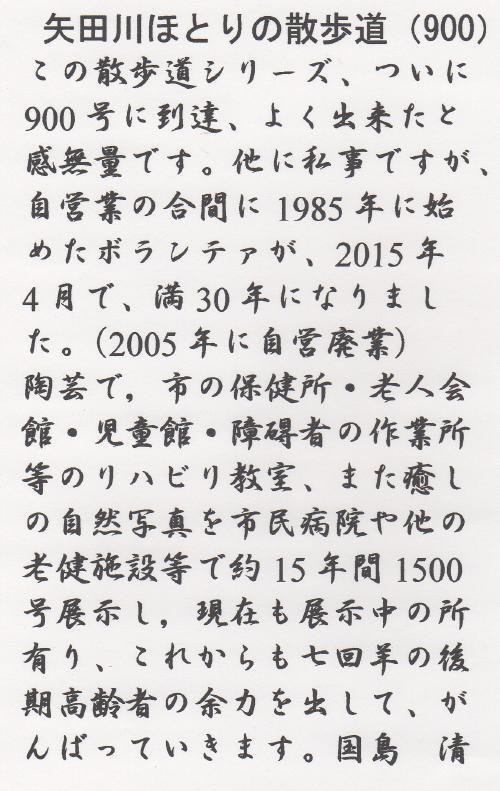 矢田川ほとりの散歩道（900）
この散歩道シリーズ、ついに
900 号に到達、よく出来たと
感無量です。他に私事ですが、
自営業の合間に 1985 年に始
めたボランテァが、2015 年
4 月で、満 30 年になりまし
た。（2005 年に自営廃業）
陶芸で，市の保健所・老人会
館・児童館・障碍者の作業所
等のリハビリ教室、また癒し
の自然写真を市民病院や他の
老健施設等で約 15 年間 1500
号展示し，現在も展示中の所
有り、これからも七回羊の後
期高齢者の余力を出して、が
んばっていきます。国島　清